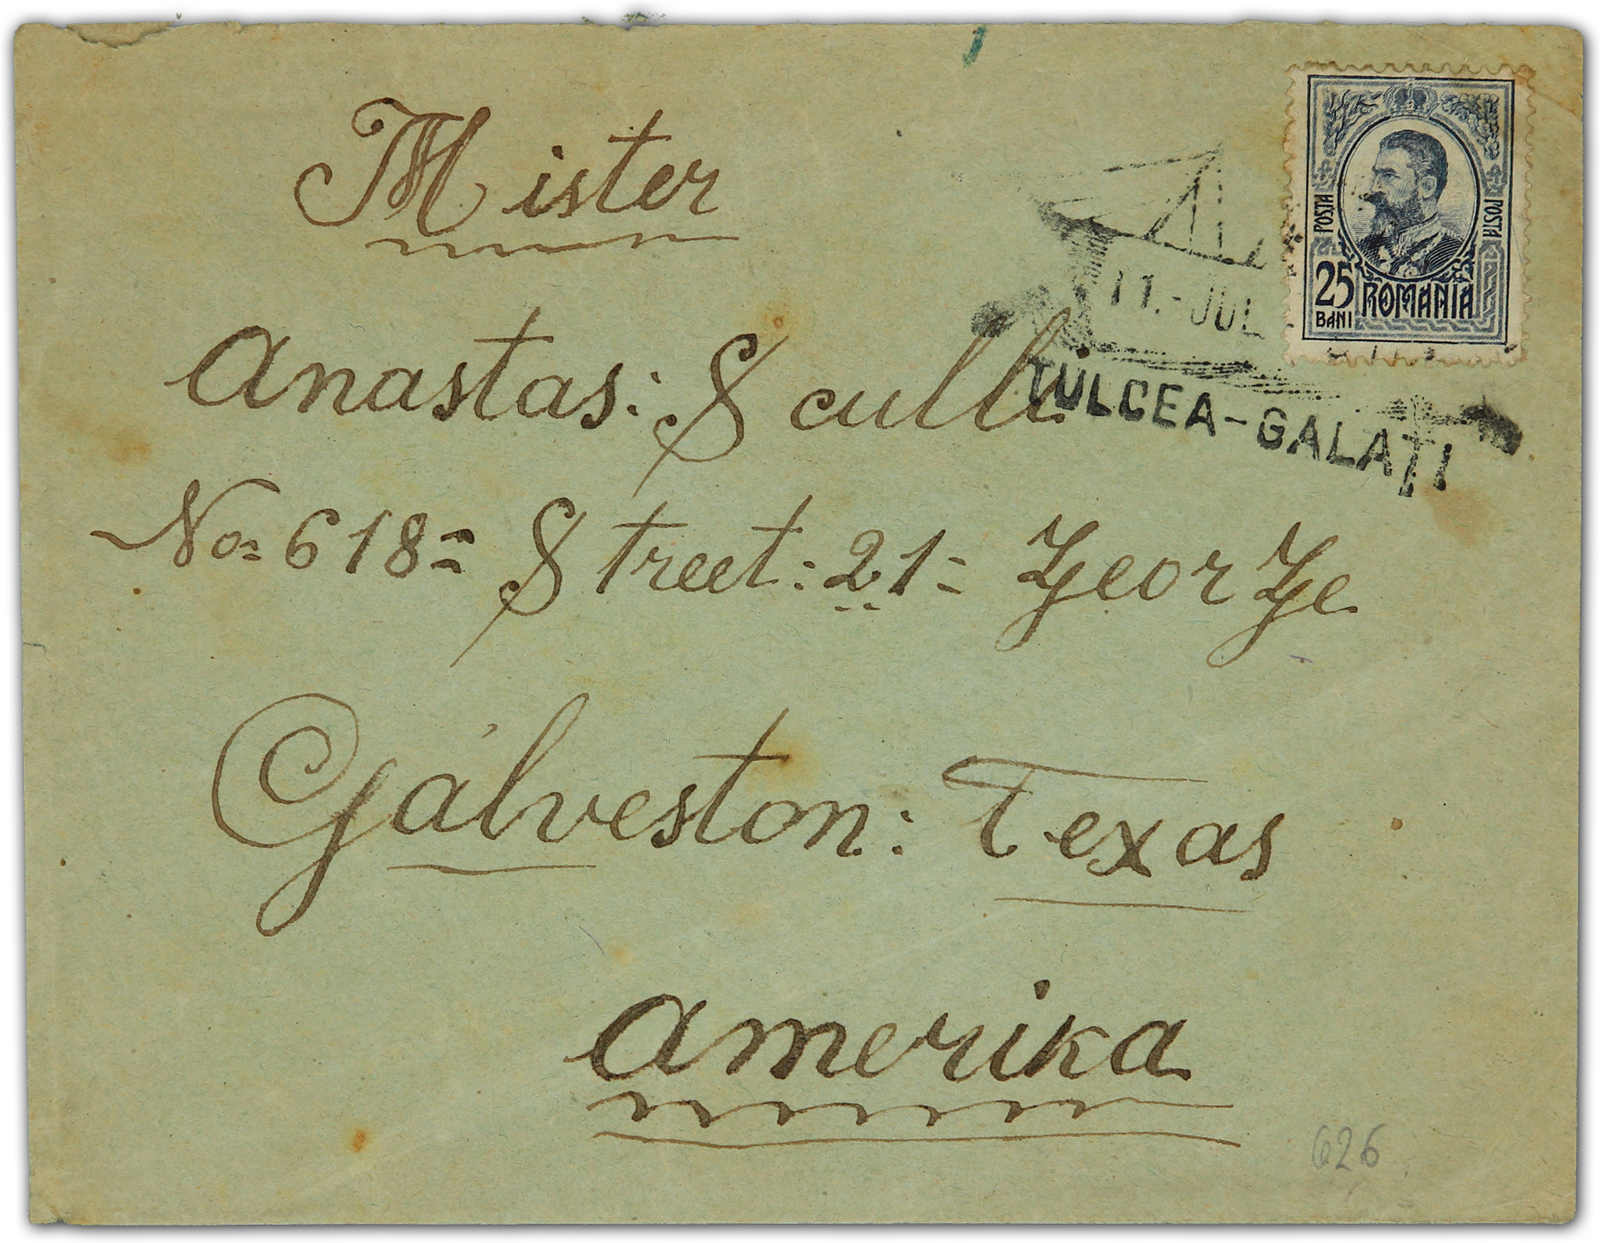 Mister
Anastas: Sculli
No= 618= Street: 21= George
Gálveston: Texas
Amerika
POSTA
POSTA
25
BANI
ROMANIA
11.-JUL
TULCEA-GALAȚI
626